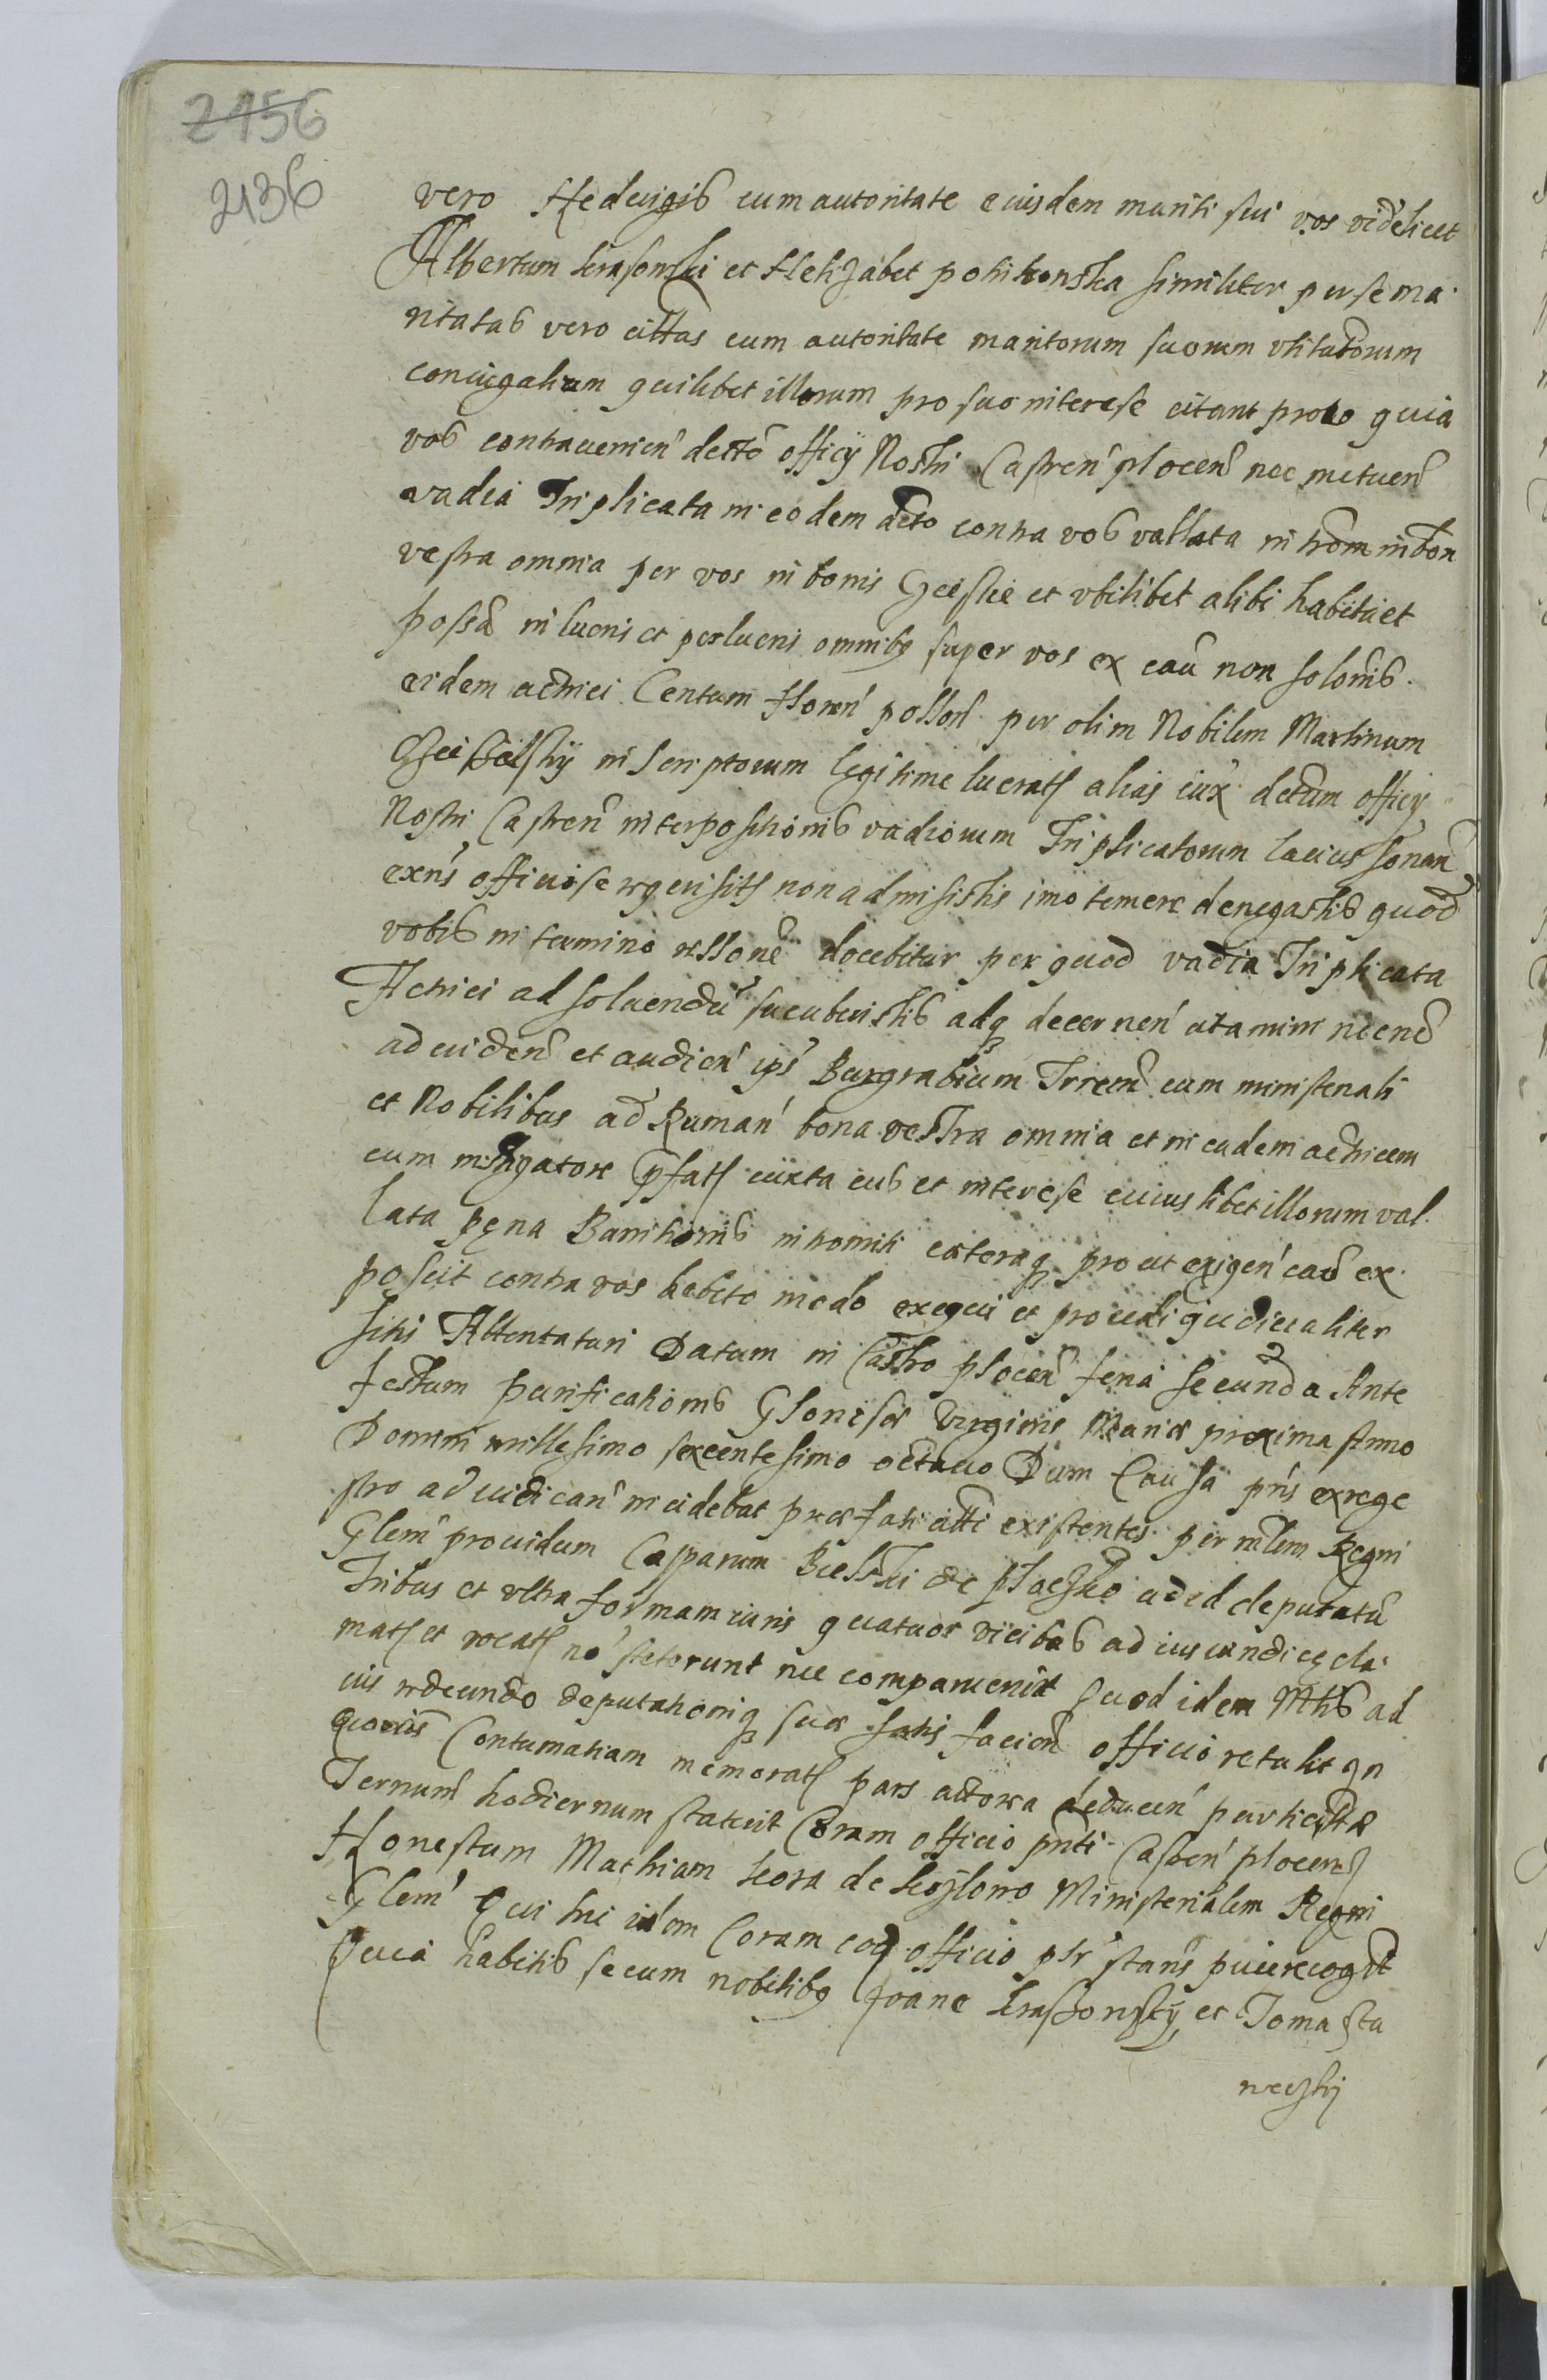 2156
2136
vero Hedvigis cum autoritate eiusdem mariti sui vos videlicet
Albertum krasowski et Helizabet ponikowska similiter per se ma
ritatas vero cittas cum autoritate maritorum suorum utitatorum
coniugalium quilibet illorum pro suo interese citant pro eo quia
vos contravenien decto officÿ Nostri Castren plocen nec metuen
vadia Triplicata in eodem dcto contra vos vallata in bon
vestra omnia per vos in bonis et ubilibet alibi habita et
possa in lucris et perlucris omnibq super vos ex cau non solonis
eidem actrici Centum floren pollon per olim Nobilem Martinum
inscriptorum legitime lucratf alias iux dectum officÿ
Nostri Castren interpositionis vadiorum Triplicatorum lacius sonan
exns officiose rquisitf non admisistis imo temere denegastis quod
vobis in termino docebitur per quod vadia Triplicata
Actrici ad soluendu sucubuistis adq decernen utamini necno
ad viden et audien ips Burgrabium Trrem cum ministeriali
et Nobilibus ad Ruman bona vestra omnia et in eadem actricem
cum instigatore pfatf iuxta ius et interese cuiuslibet illorum val
lata pena Banitionis intromiti ceteraq prout exigen cau ex
poscit contra vos debito modo exequi et procedi iudicialiter
sitis Attentaturi Datum in Castro plocen feria secunda Ante
festum purificationis Gloriosæ Virginis Mariæ proxima Anno
Domini millesimo sexcentesimo octavo Dum Causa pns ex rege
stro ad iudican incidebat præfati citti existentes per mlem Regni
Glem providum Casparum Bielski de ad id deputatu
tribus et ultra formam iuris quatuor vicibus ad ius iandicq cla
matf et vocatf no steterunt nec comparuerint Quod idem Mtlis ad
ius rdeundo deputationiq suæ satis facien officio retulit In
quorus Contumatiam memoratf pars actorea deducen
Ternum hodiernum statuit Coram officio pnti Castren plocen
Honestum Mathiam kora de Ministerialem Regni
Glem Qui hic idem Coram eod officio psr stans recogt
Quia habitis secum nobilibq Joane et Toma sta